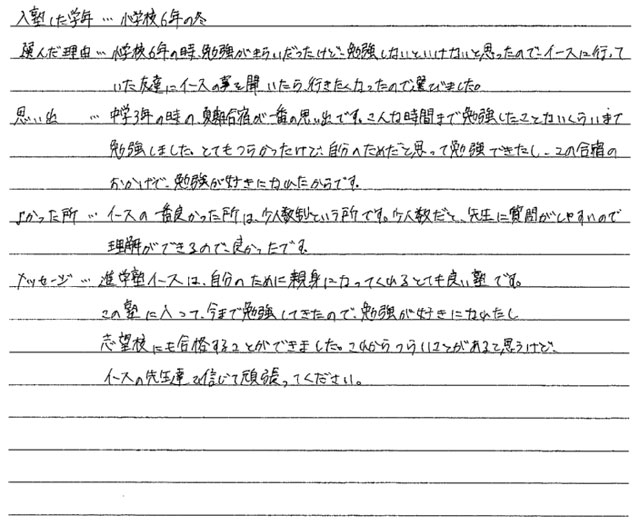 入塾した学年 … 小学校6年の冬
選んだ理由 … 小学校6年の時、勉強がきらいだったけど、勉強しないといけないと思ったので、イースに行って
いた友達にイースの事を聞いたら、行きたくなったので選びました。
思い出 … 中学3年の時の、夏期合宿が一番の思い出です。こんな時間まで勉強したことないくらいまで
勉強しました。とてもつらかったけど、自分のためだと思って勉強できたし、この合宿の
おかげで、勉強が好きになれたからです。
よかった所 … イースの一番良かった所は、少人数制という所です。少人数だと、先生に質問がしやすいので
理解ができるので、良かったです。
メッセージ … 進学塾イースは、自分のために親身になってくれるとても良い塾です。
この塾に入って、今まで勉強してきたので、勉強が好きになれたし
志望校にも合格することができました。これからつらいことがあると思うけど、
イースの先生達を信じて頑張ってください。